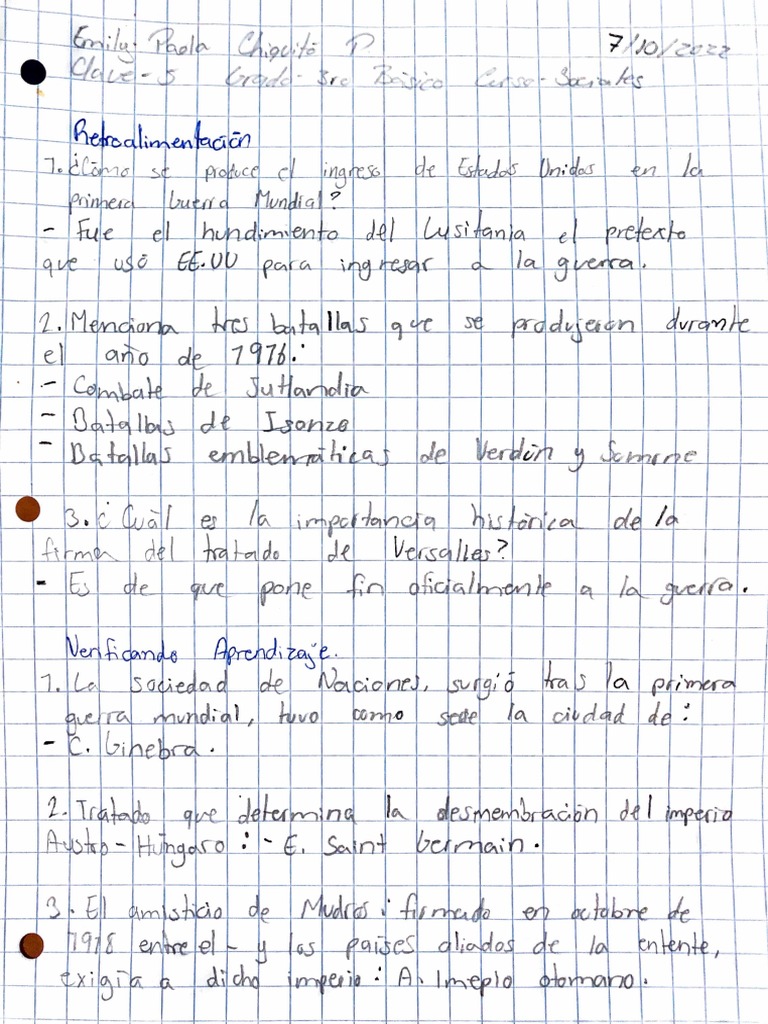 Emily Paola Chiquitó P. 7/10/2022
Clave-5 Grado-3ro Básico Curso-Sociales
Retroalimentación
1. ¿Cómo se produce el ingreso de Estados Unidos en la
primera Guerra Mundial?
- Fue el hundimiento del Lusitania el pretexto
que usó EE.UU para ingresar a la guerra.
2. Menciona tres batallas que se produjeron durante
el año de 1916:
- Combate de Jutlandia
- Batallas de Isonzo
- Batallas emblemáticas de Verdún y Somme
3. ¿Cuál es la importancia histórica de la
firma del tratado de Versalles?
- Es de que pone fin oficialmente a la guerra.
Verificando Aprendizaje.
1. La sociedad de Naciones, surgió tras la primera
guerra mundial, tuvo como sede la ciudad de:
- C. Ginebra.
2. Tratado que determina la desmembración del imperio
Austro-Húngaro: - E. Saint Germain.
3. El amisticio de Mudros: firmado en octobre de
1918 entre el - y los países aliados de la entente,
exigía a dicho imperio: A. Imepio otomano.